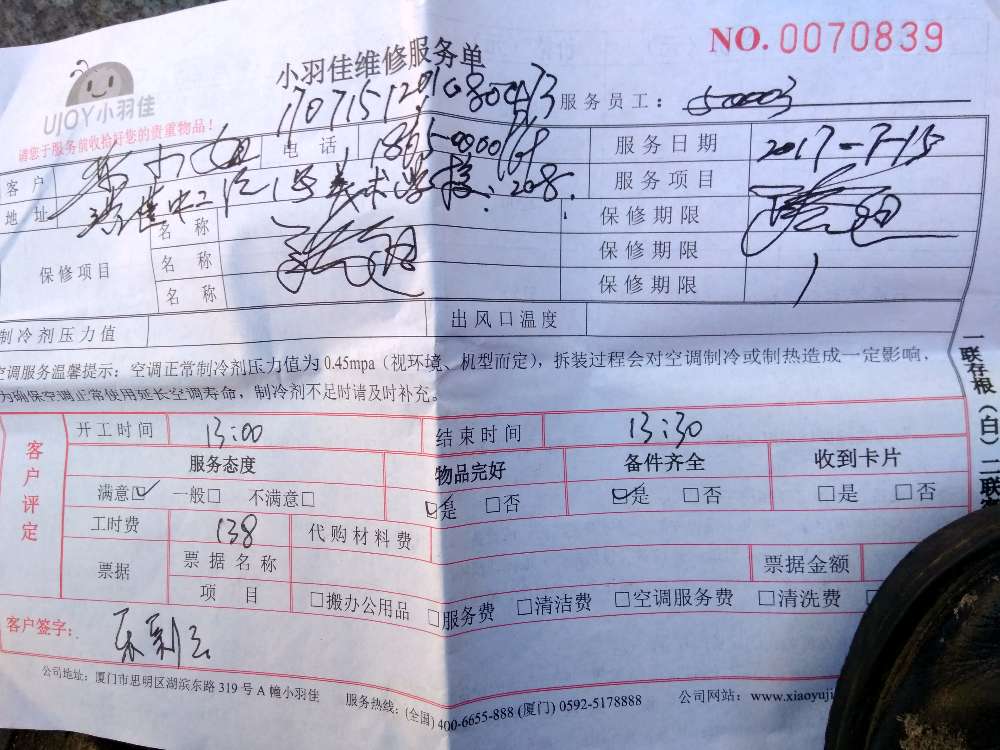 NO. 0070839
小羽佳维修服务单
UJOY小羽佳
请您于服务前收拾好您的贵重物品！
服务员工： 50003
客户 电话 服务日期 2017-7-15
地址 208 服务项目
保修项目 名称 保修期限
名称 保修期限
名称 保修期限
制冷剂压力值 出风口温度
空调服务温馨提示：空调正常制冷剂压力值为0.45mpa（视环境、机型而定），拆装过程会对空调制冷或制热造成一定影响，
为确保空调正常使用延长空调寿命，制冷剂不足时请及时补充。
客户评定
开工时间 13:00 结束时间 13:30
服务态度 物品完好 备件齐全 收到卡片
满意☑ 一般□ 不满意□ ☑是 □否 ☑是 □否 □是 □否
工时费 138 代购材料费
票据 票据名称 票据金额
项目 □搬办公用品 □服务费 □清洁费 □空调服务费 □清洗费
客户签字：
公司地址：厦门市思明区湖滨东路319号A幢小羽佳 服务热线：(全国) 400-6655-888 (厦门) 0592-5178888 公司网站：www.xiaoyuji
一联存根（白）二联